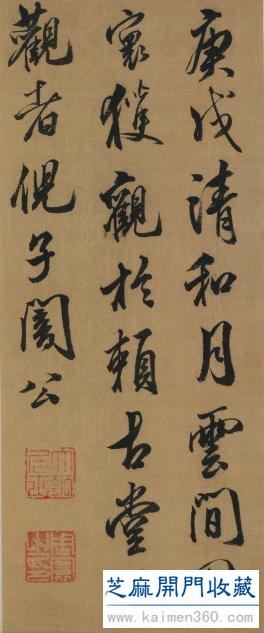 庚戌清和月雲間
獲觀於賴古堂
觀者倪子闇公
芝麻開門收藏
www.kaimen360.com